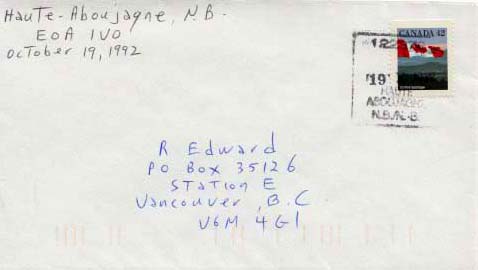 Haute-Aboujagne, N.B.
E0A 1V0
October 19, 1992
CANADA 42
19
HAUTE
ABOUJAGNE
N.B./N.-B.
R Edward
PO Box 35126
Station E
Vancouver, B.C
V6M 4G1